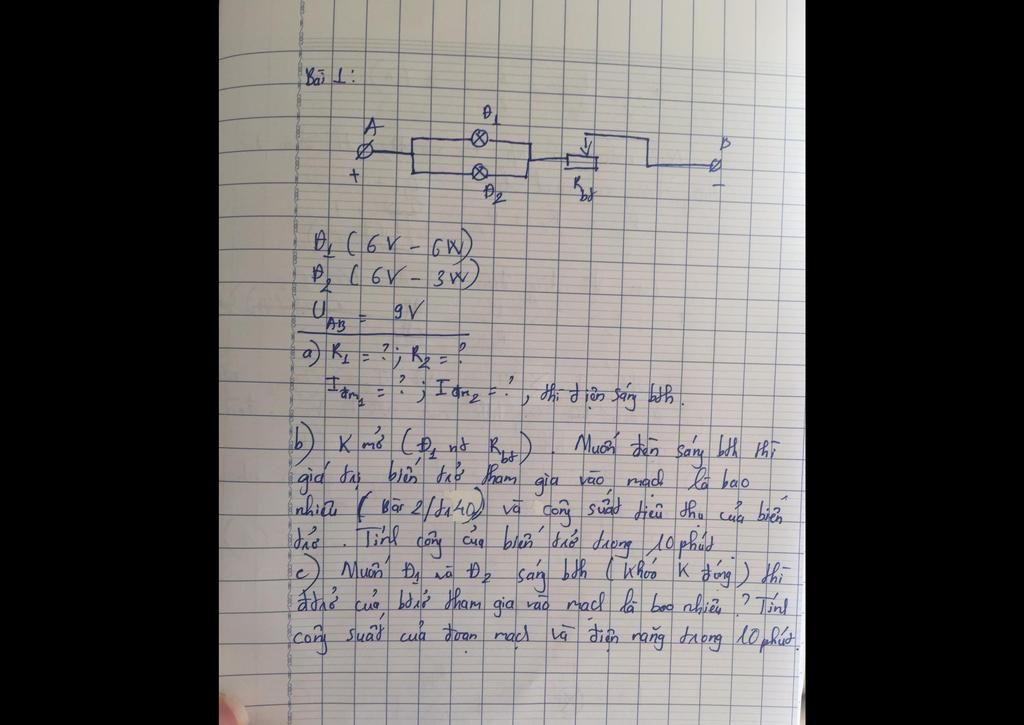 Bài 1:
Đ1
A
B
+
-
Đ2
Rbt
Đ1 ( 6V - 6W)
Đ2 ( 6V - 3W)
UAB = 9V
a) R1 = ? ; R2 = ?
Iđm1 = ? ; Iđm2 = ? , thì điện sáng bth.
b) K mở (Đ1 nt Rbt) . Muốn đèn sáng bth thì
giá trị biến trở tham gia vào mạch là bao
nhiêu (Bài 2/tr40) và công suất tiêu thụ của biến
trở . Tính công của biến trở trong 10 phút
c) Muốn Đ1 và Đ2 sáng bth (khoá K đóng) thì
đtrở của btrở tham gia vào mạch là bao nhiêu ? Tính
công suất của đoạn mạch và điện năng trong 10 phút.